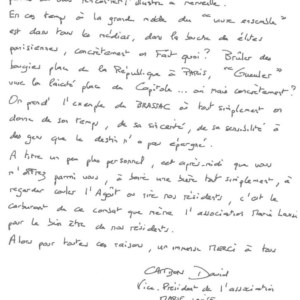 En ces temps où la grande mode du "vivre ensemble"
est dans tous les médias, dans la bouche de élites
parisiennes, concrètement on Fait quoi ? Brûler des
bougies place de la République à PARIS, "Gueuler"
vive la laïcité place du Capitole... oui mais concrètement ?
On prend l'exemple du BRASSAC où tout simplement on
donne de son temps, de sa sincérité, de sa sensibilité à
des gens que le destin n'a pas épargné.
A titre un peu plus personnel, cet après-midi que vous
m'offrez parmi vous, à boire une bière tout simplement, à
regarder couler l'Agoût ou rire nos résidents, c'est le
carburant de ce combat que mène l'association Marie Louise
par le bien être de nos résidents.
Alors pour toutes ces raisons, un immense MERCI à tous
David
Vice-Président de l'association